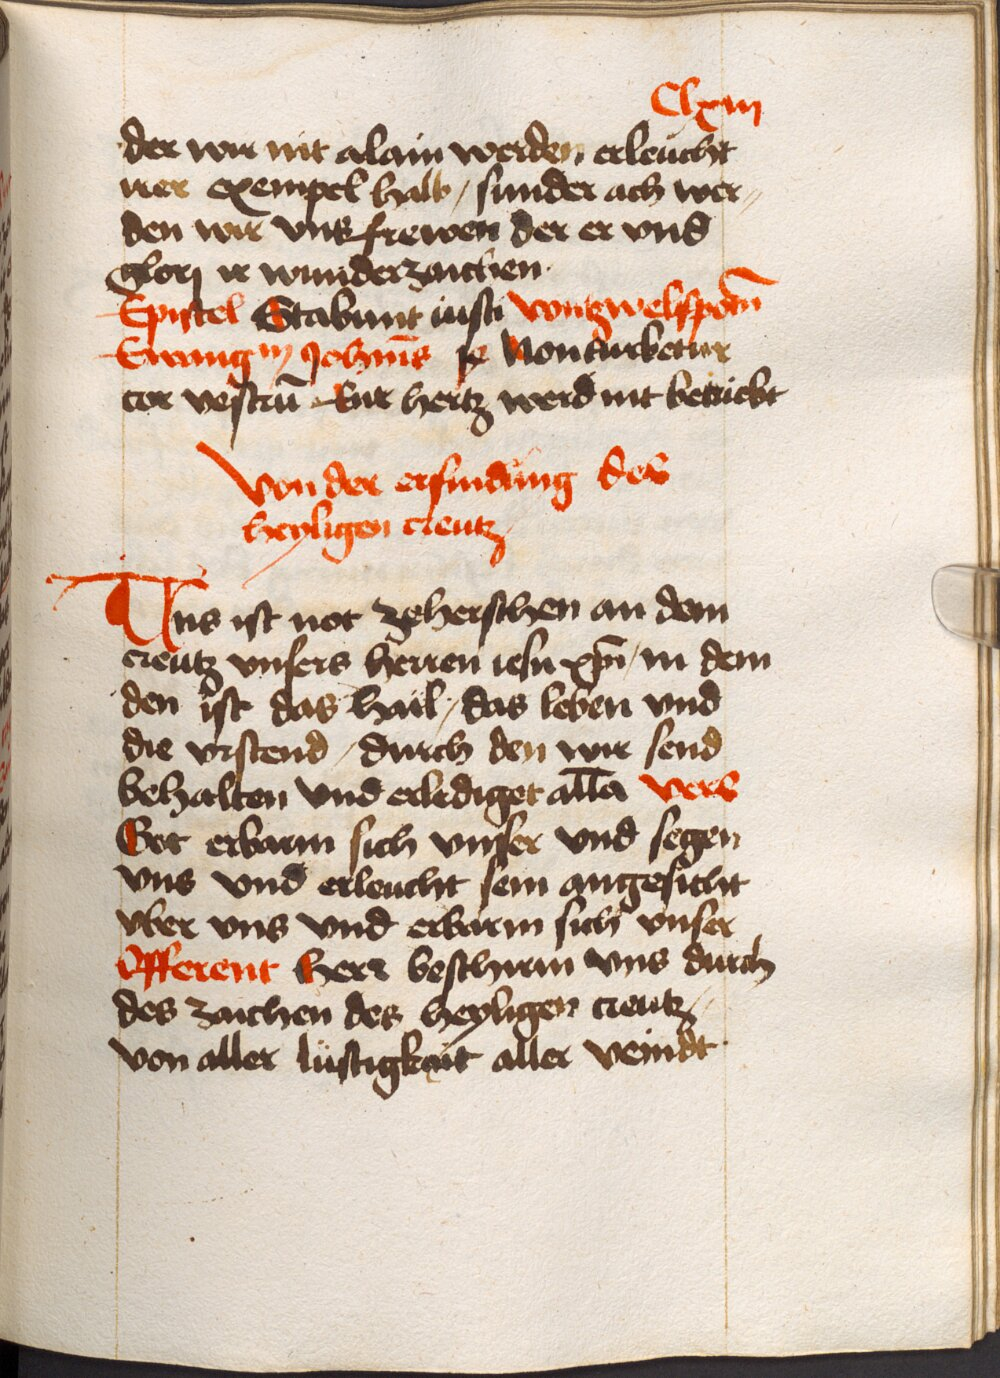 Clxiii
der wir nit alain werden erleücht
irer exempel halb / sunder ach wer⸗
den wir vns frewen der er vnd
glorj ir wunderzaichen
Epistel Stabunt iusti von tzwelfpotn̄
Ewang Johanīs Non turbetur
cor vestrū Eur hertz werd nit betriebt
Von der erfindung des
heyligen creütz
Uns ist not ze herschen an dem
creütz vnsers herren iesu xp̄i / in dem
den ist das hail / das leben vnd
die vrstend / durch den wir send
behalten vnd erlediget all̄a vers
Got erbarm sich vnser vnd segen
vns vnd erleucht sein angesicht
vber vns vnd erbarm sich vnser
Offerent Herr beschirm vns durch
des zaichen des heyligen creutz /
von aller lüstigkait aller veindt